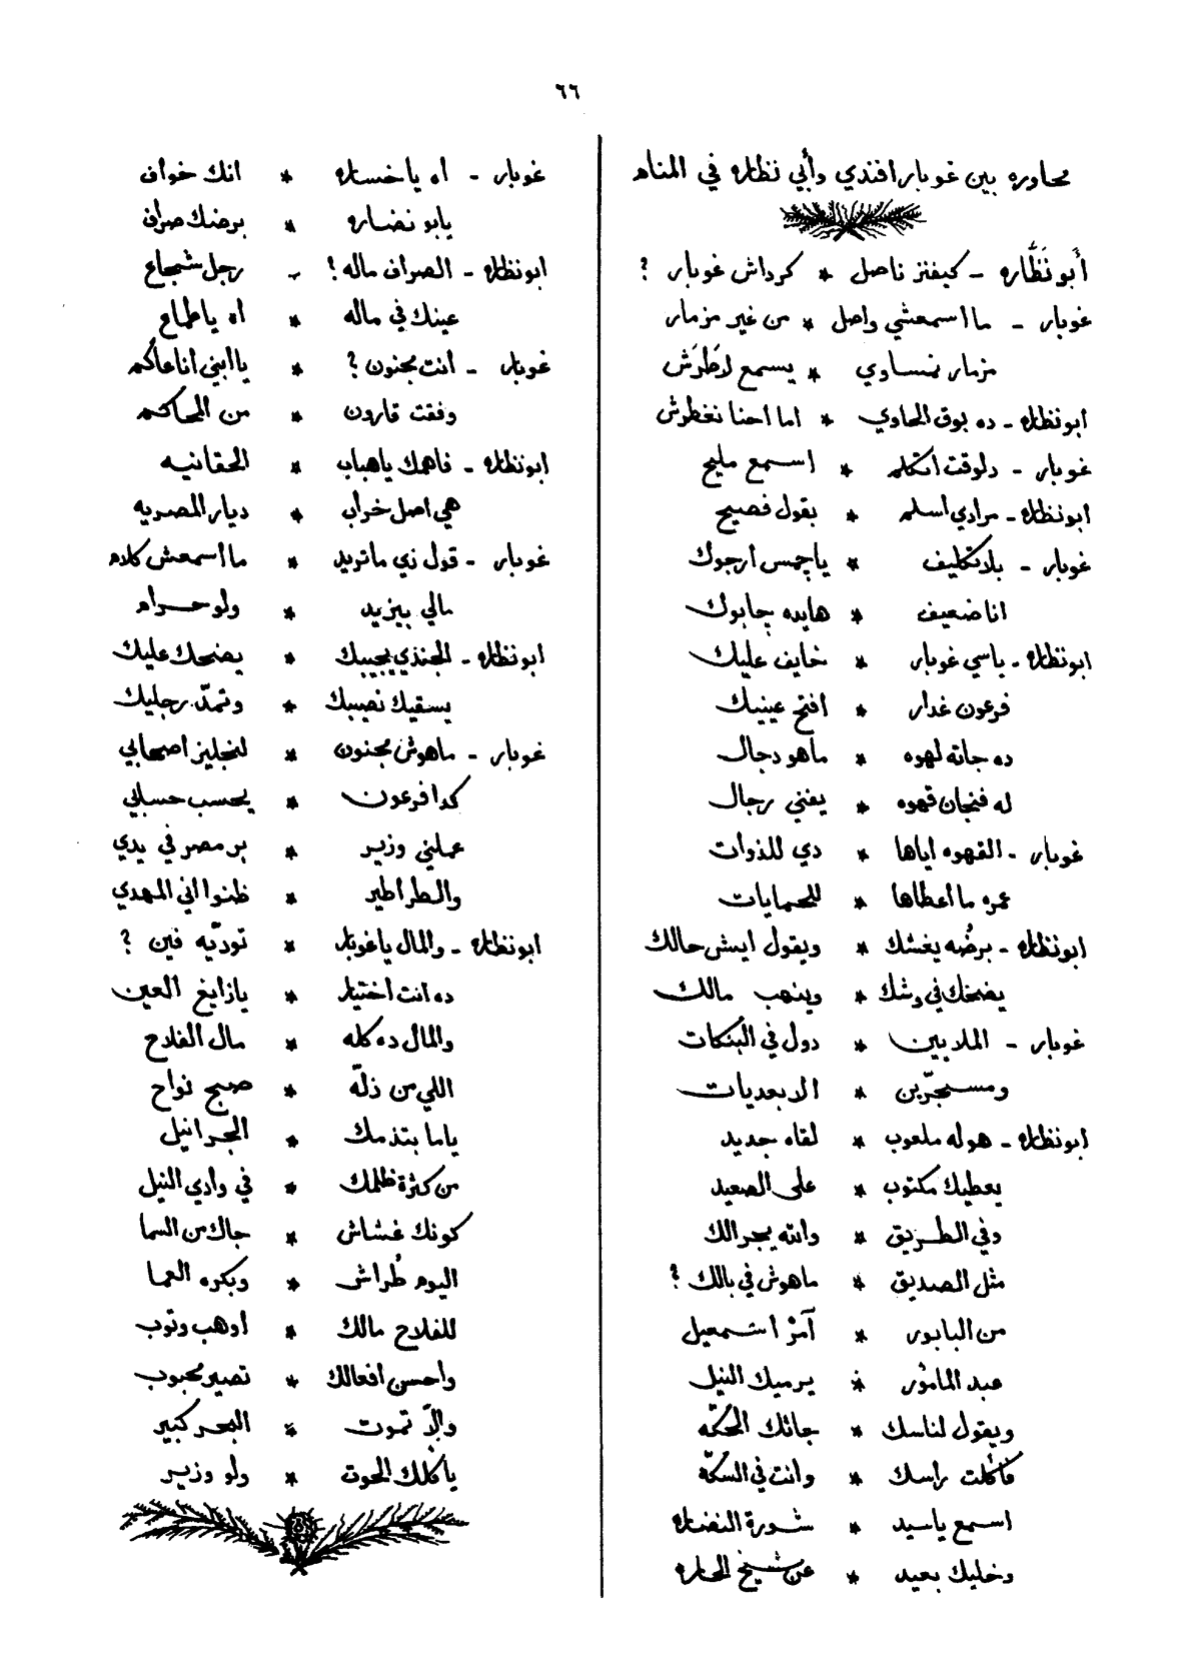 ٦٦
محاوره بين غوبار افندي وأبي نظاره في المنام
أبو نَظَّاره - كيفنز ناصل * كرداش غوبار ؟
غوبار - ما اسمعشي واصل * من غير مزمار
مزمار نمساوي * يسمع لاطرش
ابونظاره - ده بوق الحاوي * اما احنا نغطرش
غوبار - دلوقت اتكلم * اسمع مليح
ابونظاره - مرادي اسلم * بقول فصيح
غوبار - بلا تكليف * يا چمس ارجوك
انا ضعيف * هايده چابوك
ابونظاره - ياسي غوبار * خايف عليك
فرعون غدار * افتح عينيك
ده جاته لهوه * ماهو دجال
له فنجان قهوه * يفني رجال
غوبار - القهوه اياها * دي للذوات
عمره ما أعطاها * للحمايات
ابونظاره - برضُه يغشك * ويقول ايش حالك
يضحك في وشك * وينهب مالك
غوبار - الملايين * دول في البنكات
ومسيجرّين * الابعديات
ابونظاره - هوله ملعوب * لقاه جديد
يعطيك مكتوب * على الصعيد
وفي الطريق * وانته يجرالك
مثل الصديق * ماهوش في بالك ؟
من البابور * آمرْ اسمعيل
عبد المامور * يرميك النيل
ويقول لناسك * جاتك الحكّه
فأكلت راسك * وانت في السكّه
اسمع ياسيد * شورة النضاره
وخليك بعيد * عن شيخ الحاره
غوبار - اه يا خساره * انك خواف
يابو نضاره * برضك صراف
ابونظاره - الصراف ماله ؟ - رجل شجاع
عينك في ماله * اه ياطماع
غوبار - أنت مجنون ؟ * يا ابني انا عاكم
وفقت قارون * من المحاكم
ابونظاره - فاهمك ياهباب * الحقانيه
هي اصل خراب * ديار المصريه
غوبار - قول زي ماتريد * ما أسمعش كلام
مالي بيزيد * ولو حرام
ابونظاره - الجندي يجيبك * يضحك عليك
يسقيك نصيبك * وتمدّ رجليك
غوبار - ماهوش مجنون * لنجليز اصحابي
كدا فرعون * يحسب حسابي
عملني وزير * بر مصر في يدي
والطراطير * ظنوا اني المهدي
ابونظاره - والمال ياغوبار * تودّيه فين ؟
ده انت اختيار * يازايغ العين
والمال ده كله * مال الفلاح
اللي من ذلّه * صبح نواح
ياما بتذمك * الجرانيل
من كثرة ظلمك * في وادي النيل
كونك غشاش * جاك من السما
اليوم طُراش * وبكره العما
للفلاح مالك * أوهب وتوب
واحسن افعالك * تصير محبوب
والّا تموت * البحر كبير
يأكلك الحوت * ولو وزير